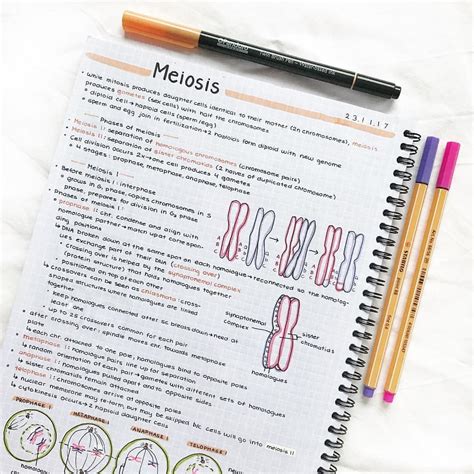 Meiosis
23.11.17
• while mitosis produces daughter cells identical to their mother (2n chromosomes), meiosis
produces gametes (sex cells) with half the chromosomes
↳ diploid cell → haploid cells (sperm/egg)
• sperm and egg join in fertilization → 2 haploids form diploid with new genome
Phases of meiosis
• Meiosis I: separation of homologous chromosomes (chromosome pairs)
• Meiosis II: separation of sister chromatids (2 genes of duplicated chromosome)
• Cell division occurs 2x → one cell produces 4 gametes
• 4 stages: prophase, metaphase, anaphase, telophase
Meiosis I
• Before meiosis I: interphase
↳ grows in G₁ phase, copies chromosomes in S
phase, prepares for division in G₂ phase
• prophase I: chr. condense and align with
homologue partner → match up at corresponding
positions
↳ DNA broken down at the same spot on each homologue → reconnected so the homologues
exchange part of their DNA (crossing over)
↳ crossing over is helped by the synaptonemal complex
(protein structure that holds homologues together
↳ positioned on top of each other
↳ crossovers can be seen as chiasmata: cross-
shaped structures where homologues are linked
together
↳ keep homologues connected after SC breaks down → need at
least one
↳ up to 25 crossovers common for each pair
• after crossing over: spindle moves chr. towards metaphase
plate
↳ each chr. attached to one pole, homologues bind to opposite poles
• metaphase I: homologue pairs line up for separation
↳ random orientation of each pair → gametes with different sets of homologues
• anaphase I: homologues pulled apart and to opposite sides
↳ sister chromatids remain attached
• telophase I: chr. arrive at opposite poles
↳ nuclear membrane may re-form, but may be skipped b/c cells will go into meiosis II
↳ cytokinesis occurs → 2 haploid daughter cells
synaptonemal
complex
sister
chromatids
homologues
PROPHASE
METAPHASE
ANAPHASE
TELOPHASE
STABILO